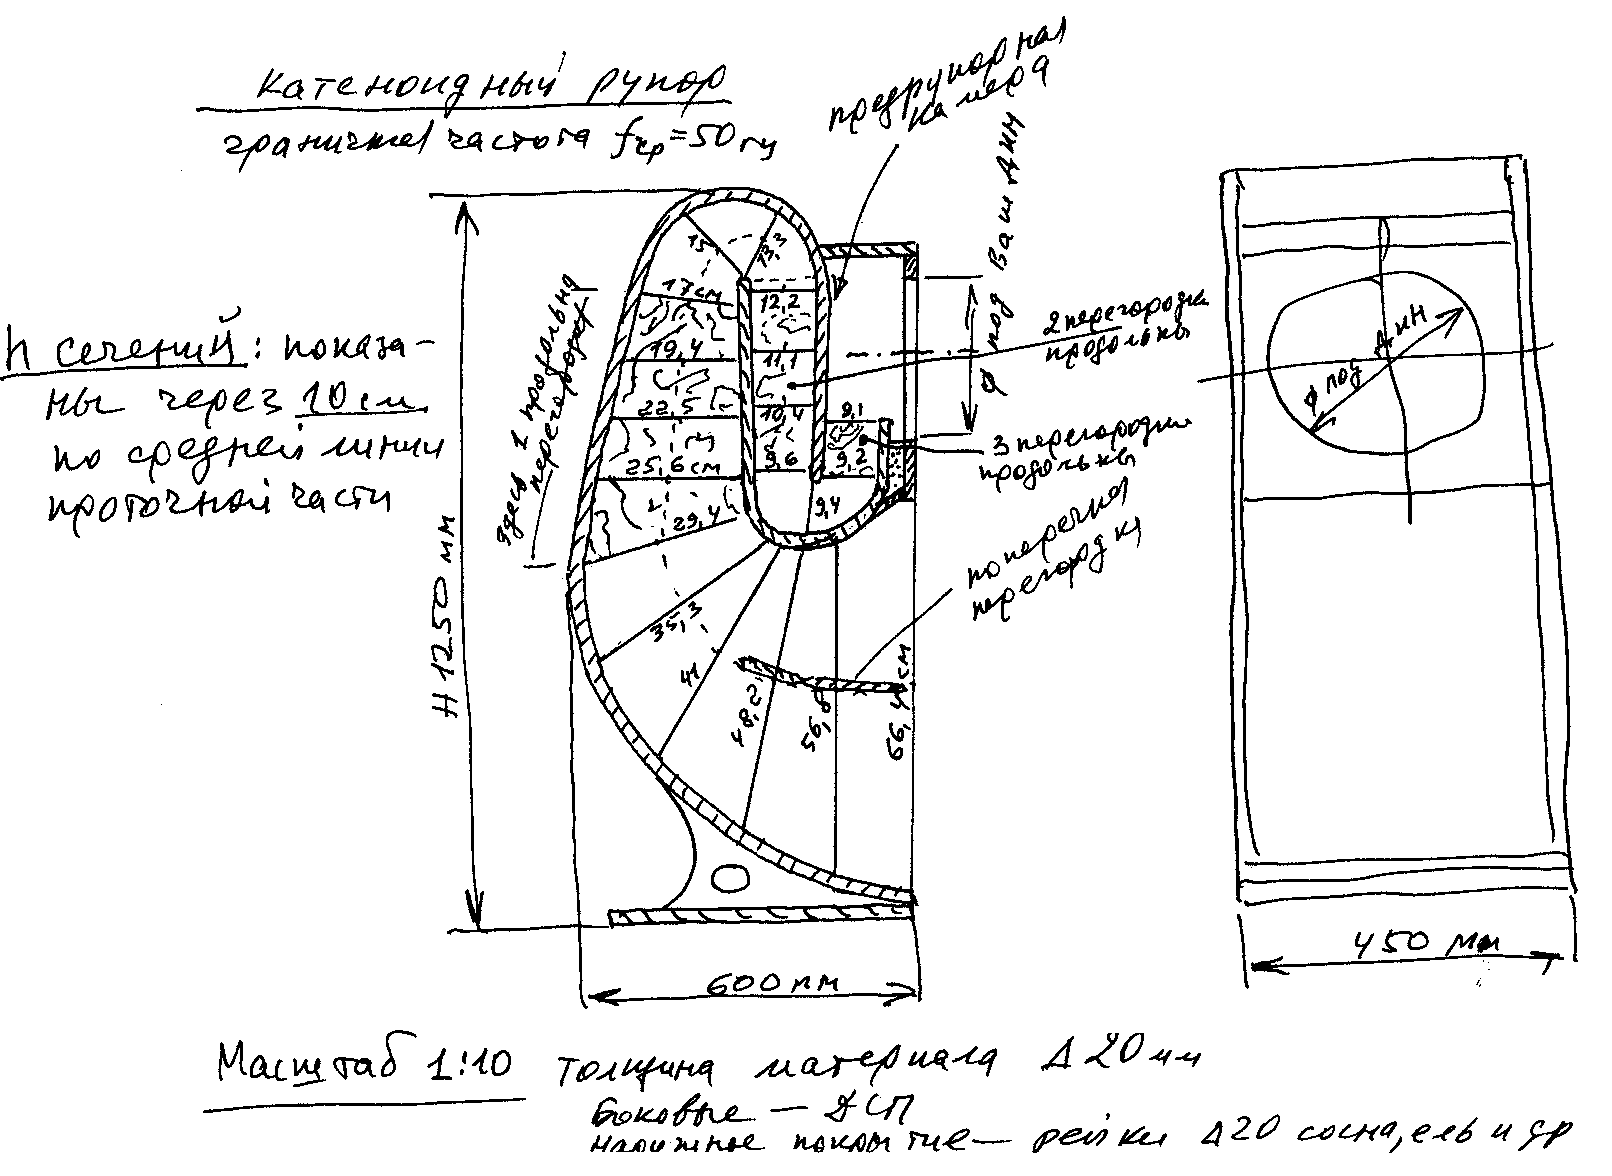 Катеноидный рупор
граничная частота fгр=50гц
предрупорная
камера
ф под Ваш ДИН
15
13,3
17см
12,2
19,4
11,1
22,5
10,4
9,1
25,6 см
9,6
9,2
29,4
9,4
35,3
41
48,2
56,8
66,4 см
Здесь 1 продольна
перегородка
2 перегородки
продольны
3 перегородки
продольны
поперечная
перегородка
h сечений: показа-
ны через 10 см
по средней линии
проточной части
H 1250 мм
600 мм
ф под Дин
450 мм
Масштаб 1:10 толщина материала Δ 20 мм
Боковые — ДСП
наружное покрытие — рейки Δ20 сосна, ель и др